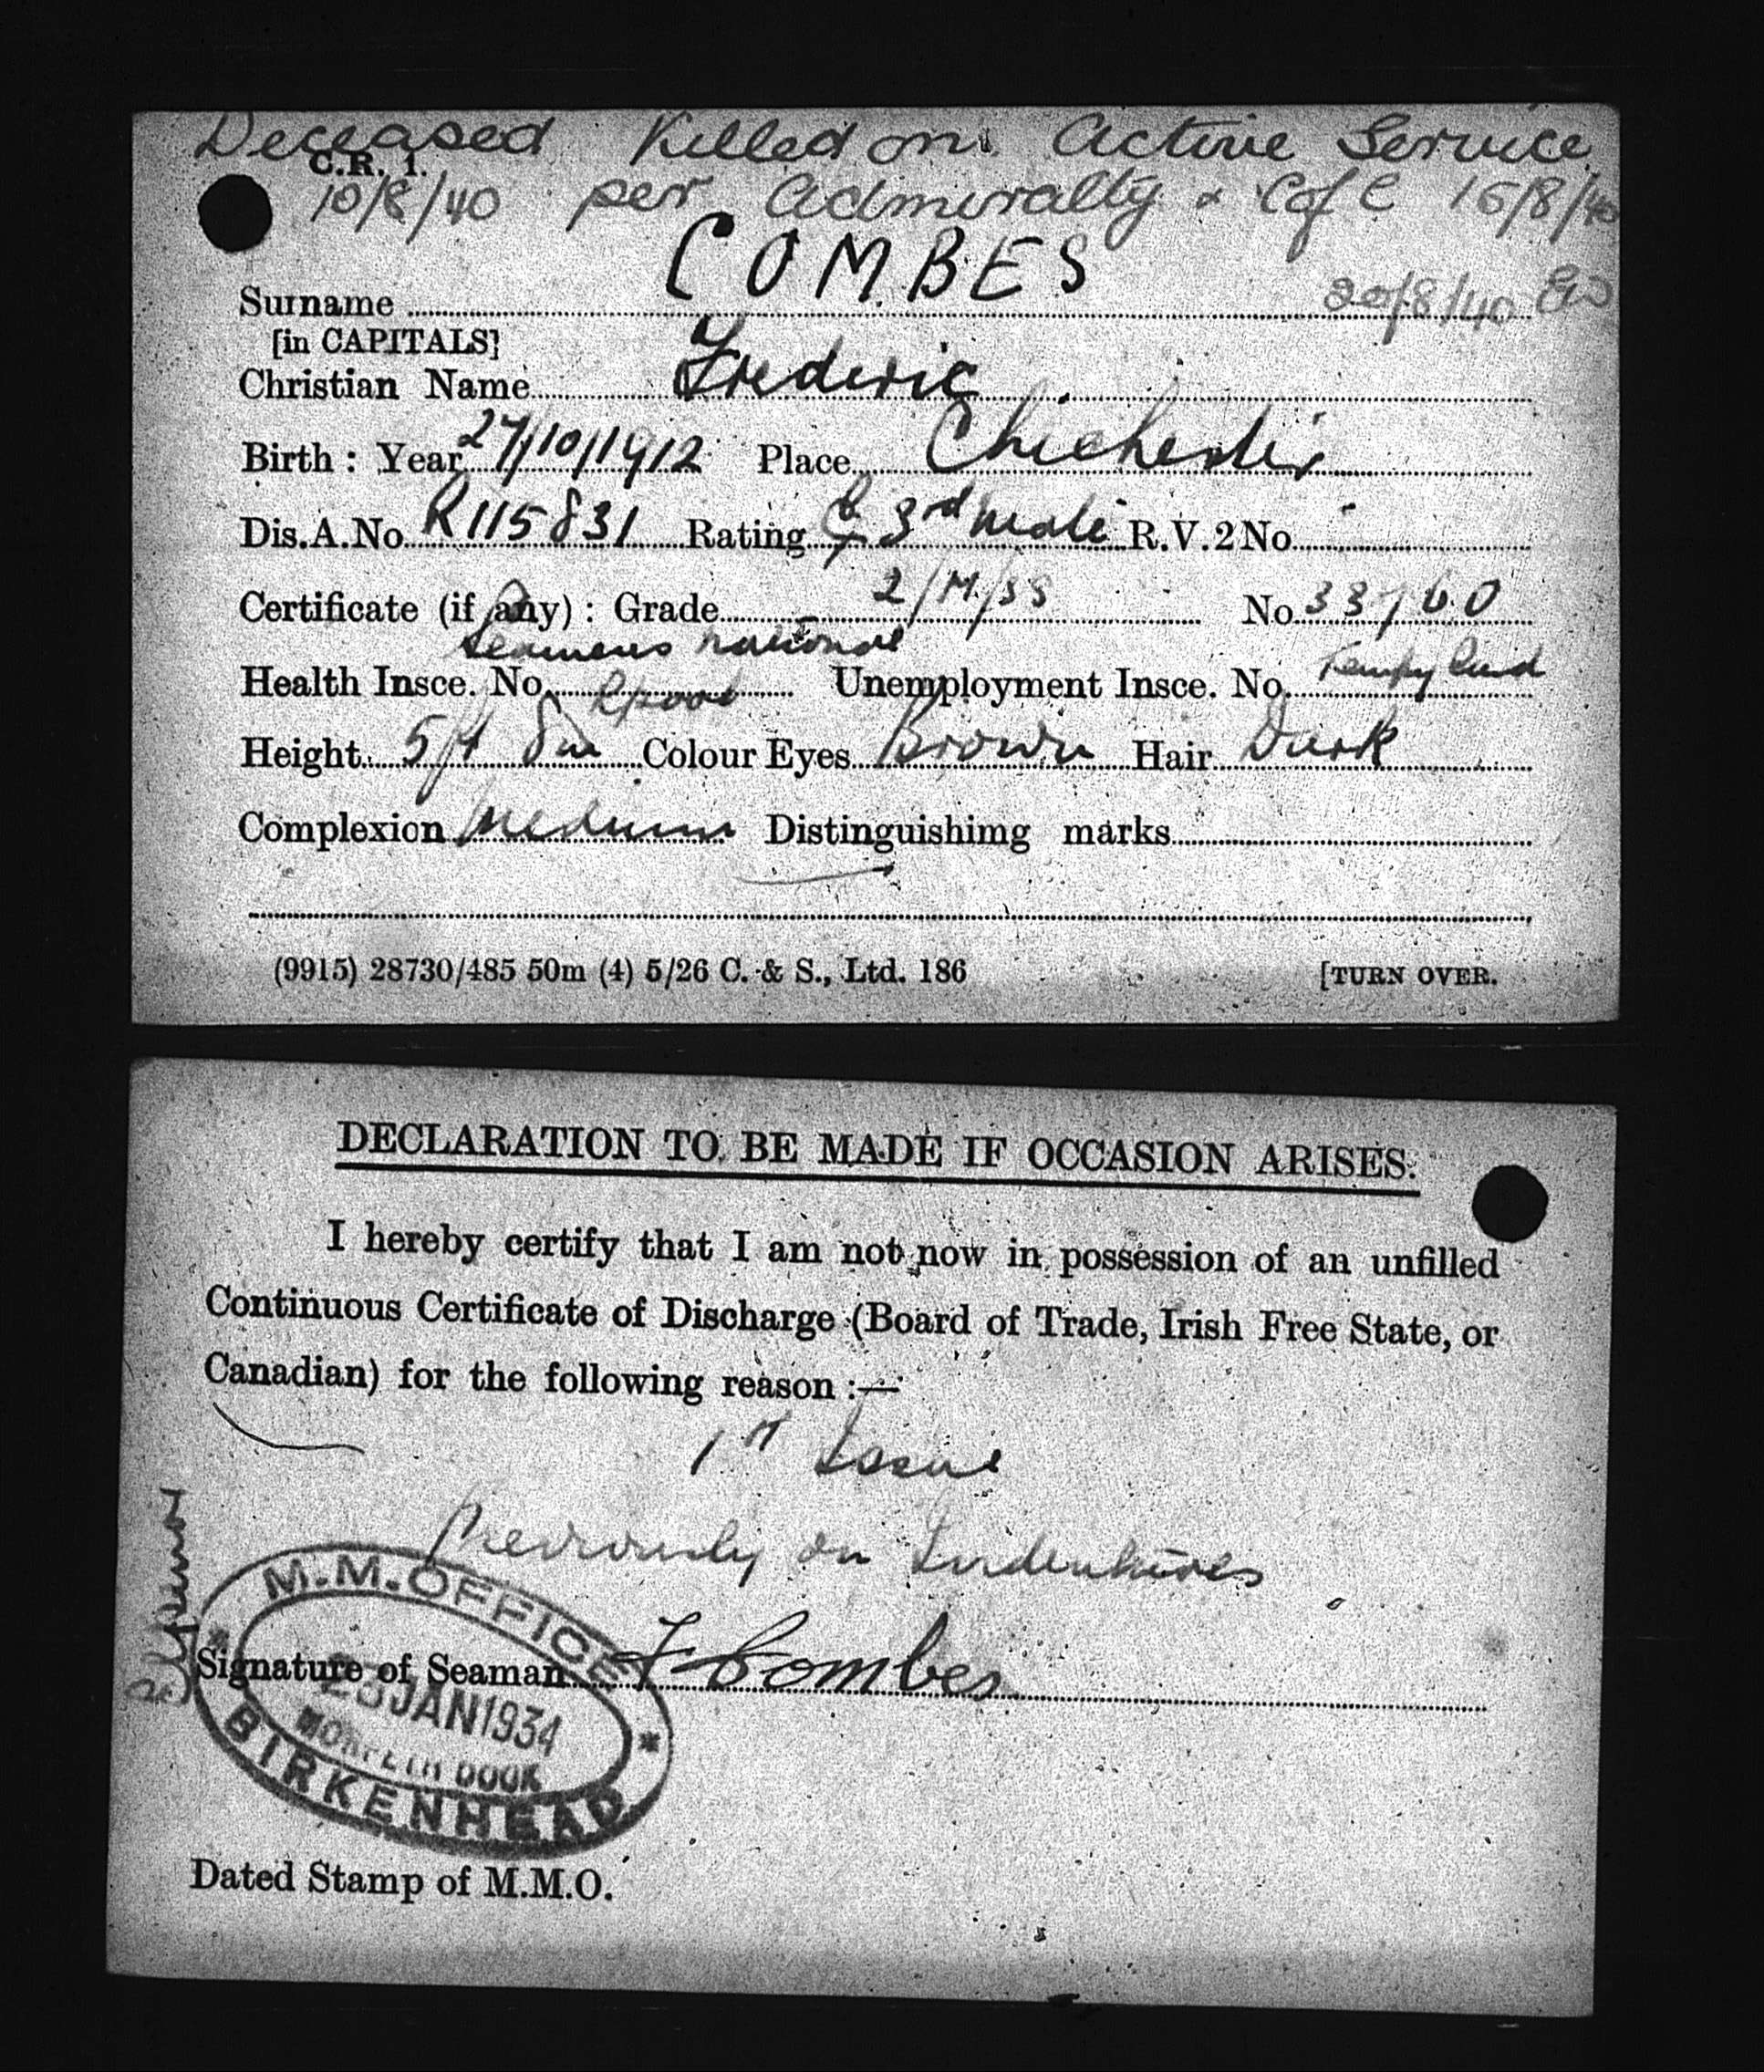 Deceased Killed on Active Service
C.R. 1.
10/8/40 per Admiralty & C of C 15/8/40
Surname COMBES 20/8/40
[in CAPITALS]
Christian Name Frederic
Birth: Year 27/10/1912 Place Chichester
Dis.A.No. R115831 Rating 3rd Mate R.V.2 No.
Certificate (if any): Grade 2/M/SS No 33760
Seamens national
Health Insce. No. Lpool Unemployment Insce. No.
Height 5ft 8in Colour Eyes Brown Hair Dark
Complexion Medium Distinguishimg marks
(9915) 28730/485 50m (4) 5/26 C. & S., Ltd. 186 [TURN OVER.
DECLARATION TO BE MADE IF OCCASION ARISES.
I hereby certify that I am not now in possession of an unfilled
Continuous Certificate of Discharge (Board of Trade, Irish Free State, or
Canadian) for the following reason :—
1st Issue
Previously on Indentures
M.M. OFFICE
Signature of Seaman F Combes
23 JAN 1934
MORPETH DOCK
BIRKENHEAD
Dated Stamp of M.M.O.